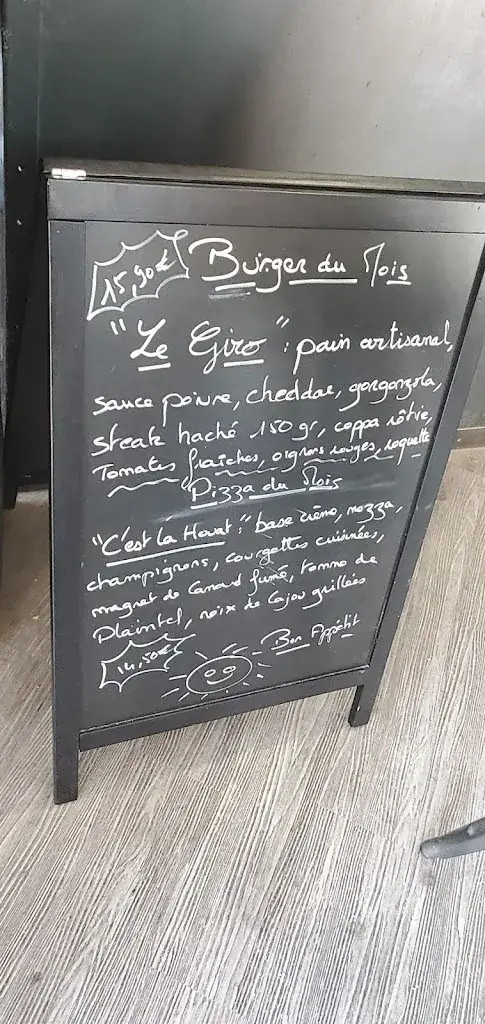 15,90€ Burger du Mois
"Le Giro": pain artisanal,
sauce poivre, cheddar, gorgonzola,
steak haché 150 gr, coppa rôtie,
Tomates fraîches, oignons rouges, roquette
Pizza du Mois
"C'est la Hout": base crème, mozza,
champignons, courgettes cuisinées,
magret de Canard fumé, tomme de
Plaintel, noix de Cajou grillées
14,50€ Bon Appétit